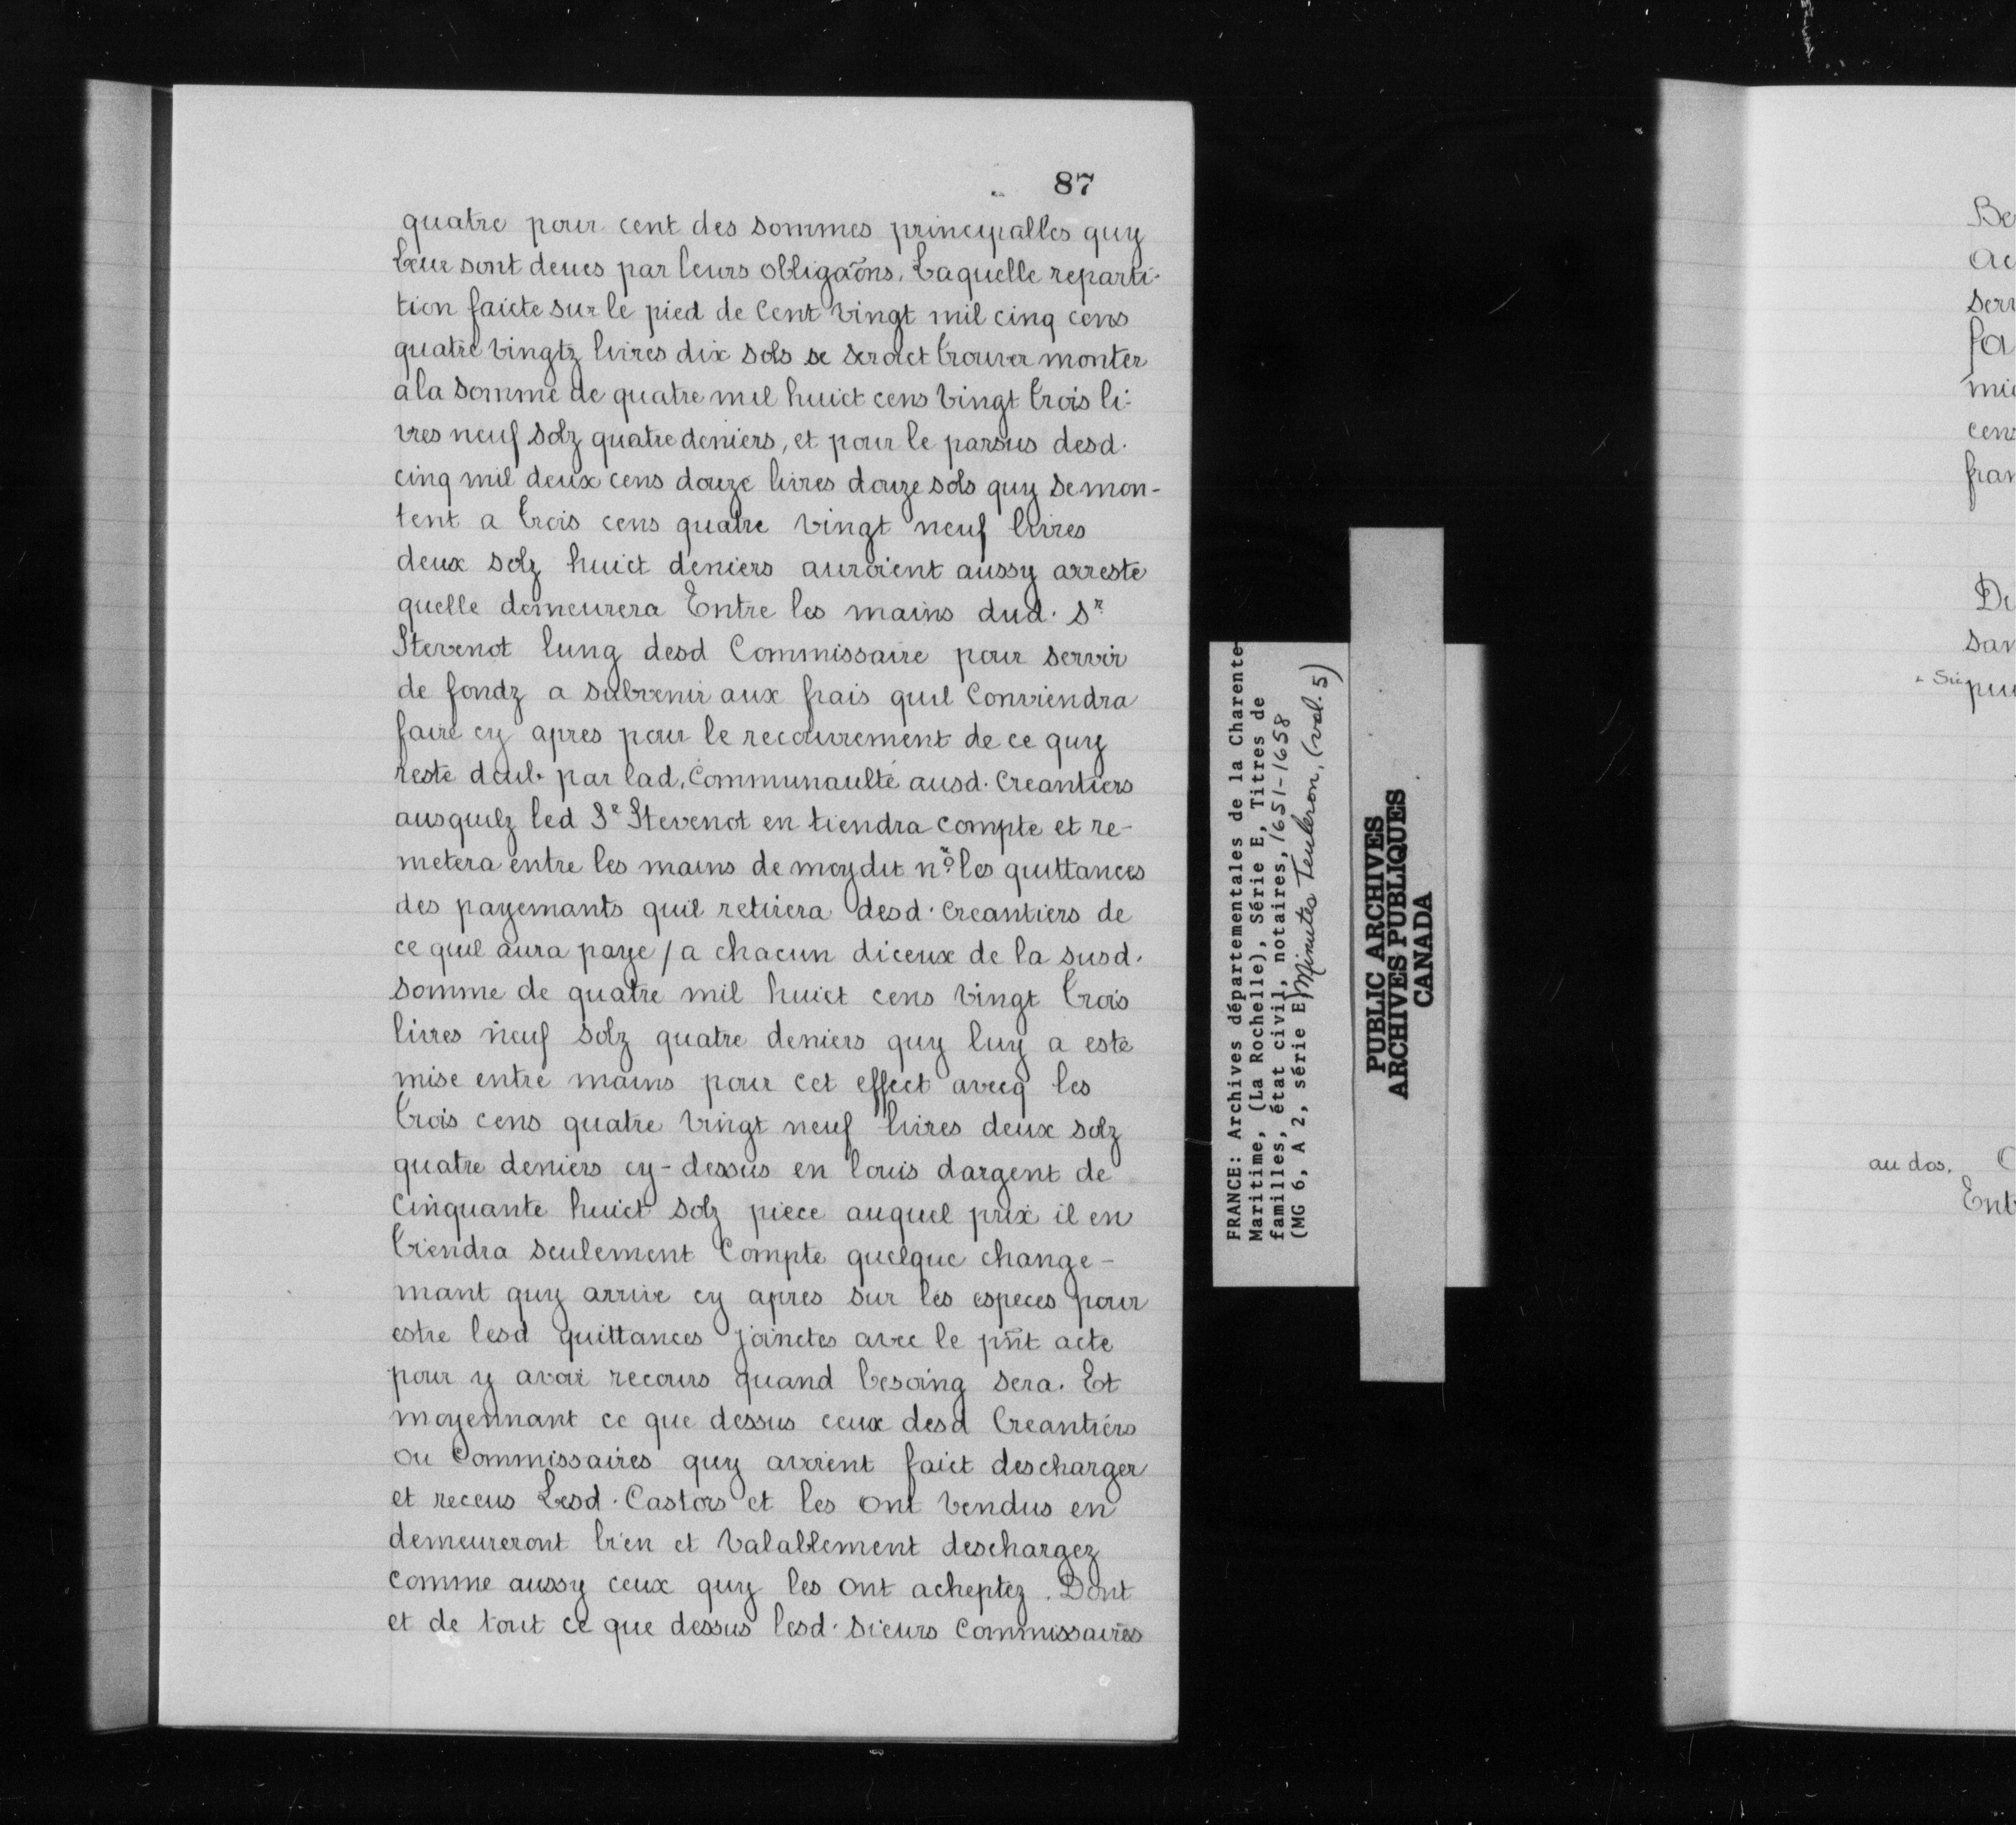 87
quatre pour cent des sommes principalles quy
Leur sont deues par leurs obligaõns. Laquelle reparti-
tion faicte sur le pied de Cent vingt mil cinq cens
quatre vingtz livres dix sols se seroict trouver monter
a la somme de quatre mil huict cens vingt trois li-
vres neuf solz quatre deniers, et pour le parsus desd.
cinq mil deux cens douze livres douze sols quy se mon-
tent a trois cens quatre vingt neuf livres
deux solz huict deniers auroient aussy arreste
quelle demeurera Entre les mains dud. Sr
Stevenot lung desd Commissaire pour servir
de fondz a subvenir aux frais quil Conviendra
faire cy apres pour le recouvrement de ce quy
reste doub. par lad. Communaulté ausd. Creantiers
ausquelz led Sr Stevenot en tiendra compte et re-
metera entre les mains de moydit nore les quittances
des payemants quil retirera desd. creantiers de
ce quil aura paye / a chacun diceux de la susd.
somme de quatre mil huict cens vingt trois
livres neuf solz quatre deniers quy luy a esté
mise entre mains pour cet effect avecq les
trois cens quatre vingt neuf livres deux solz
quatre deniers cy-dessus en louis dargent de
cinquante huict solz piece auquel prix il en
tiendra seulement Compte quelque change-
mant quy arrive cy apres sur les especes pour
estre lesd quittances joinctes avec le pñt acte
pour y avoir recours quand besoing sera. Et
moyennant ce que dessus ceux desd Creantiers
ou Commissaires quy avoient faict descharger
et receus Lesd. Castors et les ont vendus en
demeureront bien et valablement deschargez
comme aussy ceux quy les ont acheptez. Dont
et de tout ce que dessus lesd. sieurs Commissaires
FRANCE: Archives départementales de la Charente-
Maritime, (La Rochelle), Série E, Titres de
familles, état civil, notaires, 1651-1658
(MG 6, A 2, série E) Minutes Teuleron, (vol. 5)
PUBLIC ARCHIVES
ARCHIVES PUBLIQUES
CANADA
au dos.